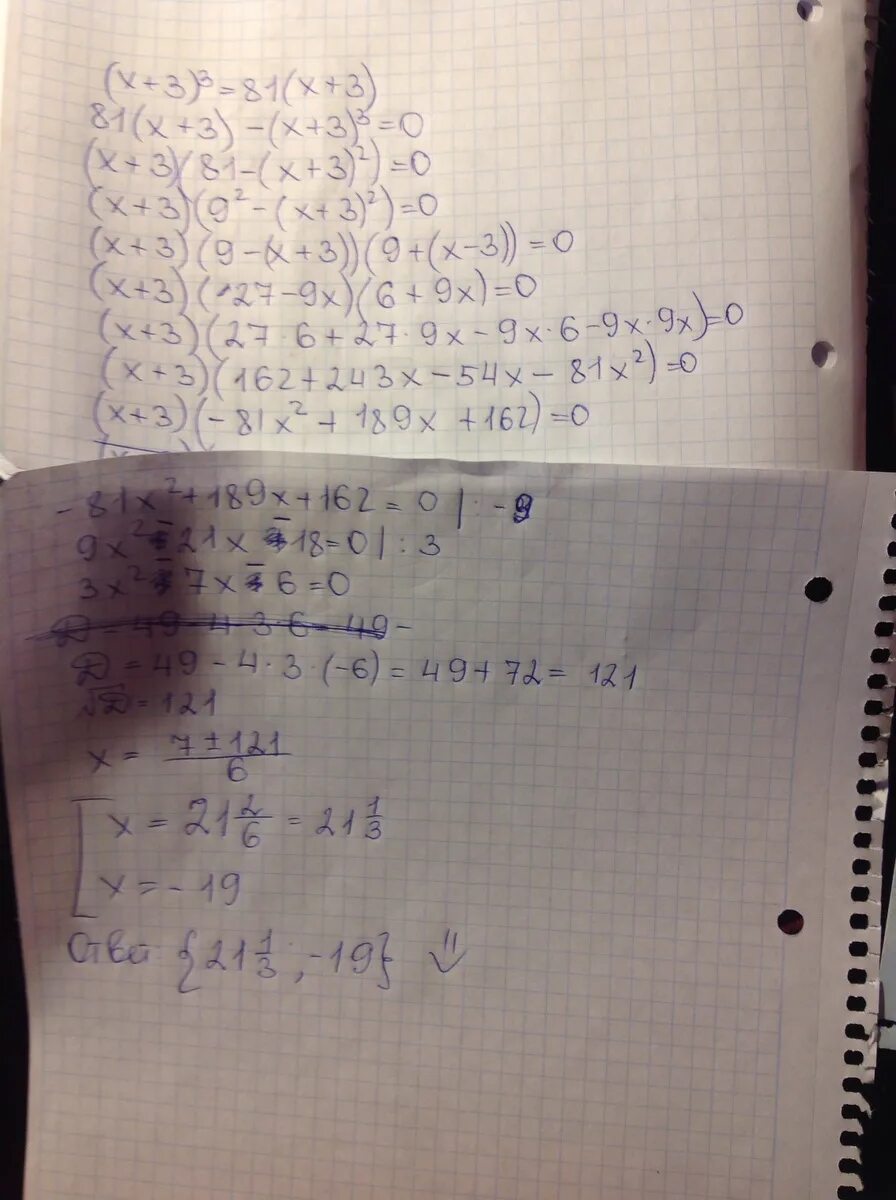 (x+3)³=81(x+3)
81(x+3)-(x+3)³=0
(x+3)(81-(x+3)²)=0
(x+3)(9²-(x+3)²)=0
(x+3)(9-(x+3))(9+(x-3))=0
(x+3)(27-9x)(6+9x)=0
(x+3)(27·6+27·9x-9x·6-9x·9x)=0
(x+3)(162+243x-54x-81x²)=0
(x+3)(-81x²+189x+162)=0
-81x²+189x+162=0 |:-9
9x²-21x-18=0 |:3
3x²-7x-6=0
D=49-4·3·6=49-
D=49-4·3·(-6)=49+72=121
√D=121
x=7±121/6
x=21 2/6=21 1/3
x=-19
Ответ {21 1/3; -19}